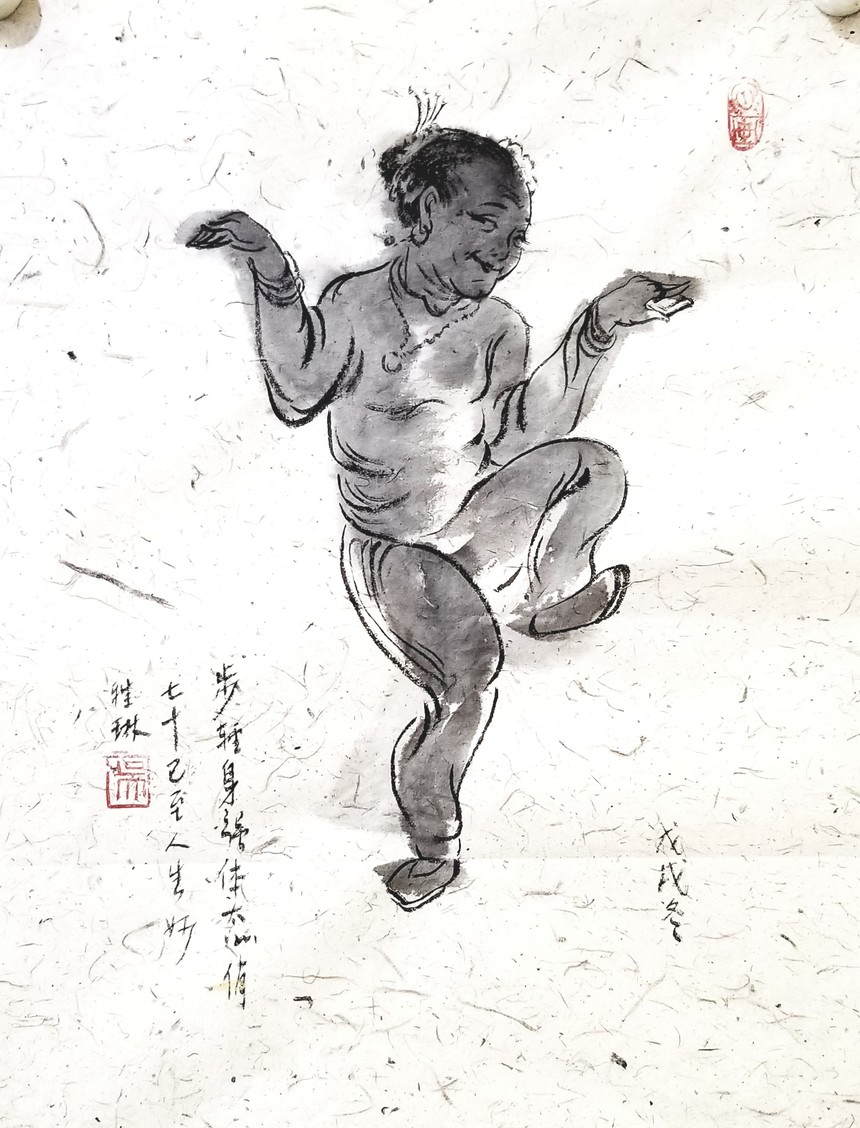 戊戌冬
步輕身体态俏
七十已至人生妙
雅琳